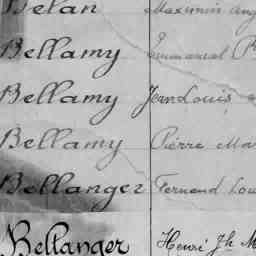 Belan Maximin Aug
Bellamy Emmanuel P
Bellamy Jean Louis
Bellamy Pierre Mar
Bellanger Fernand Lou
Bellanger Henri Jh M